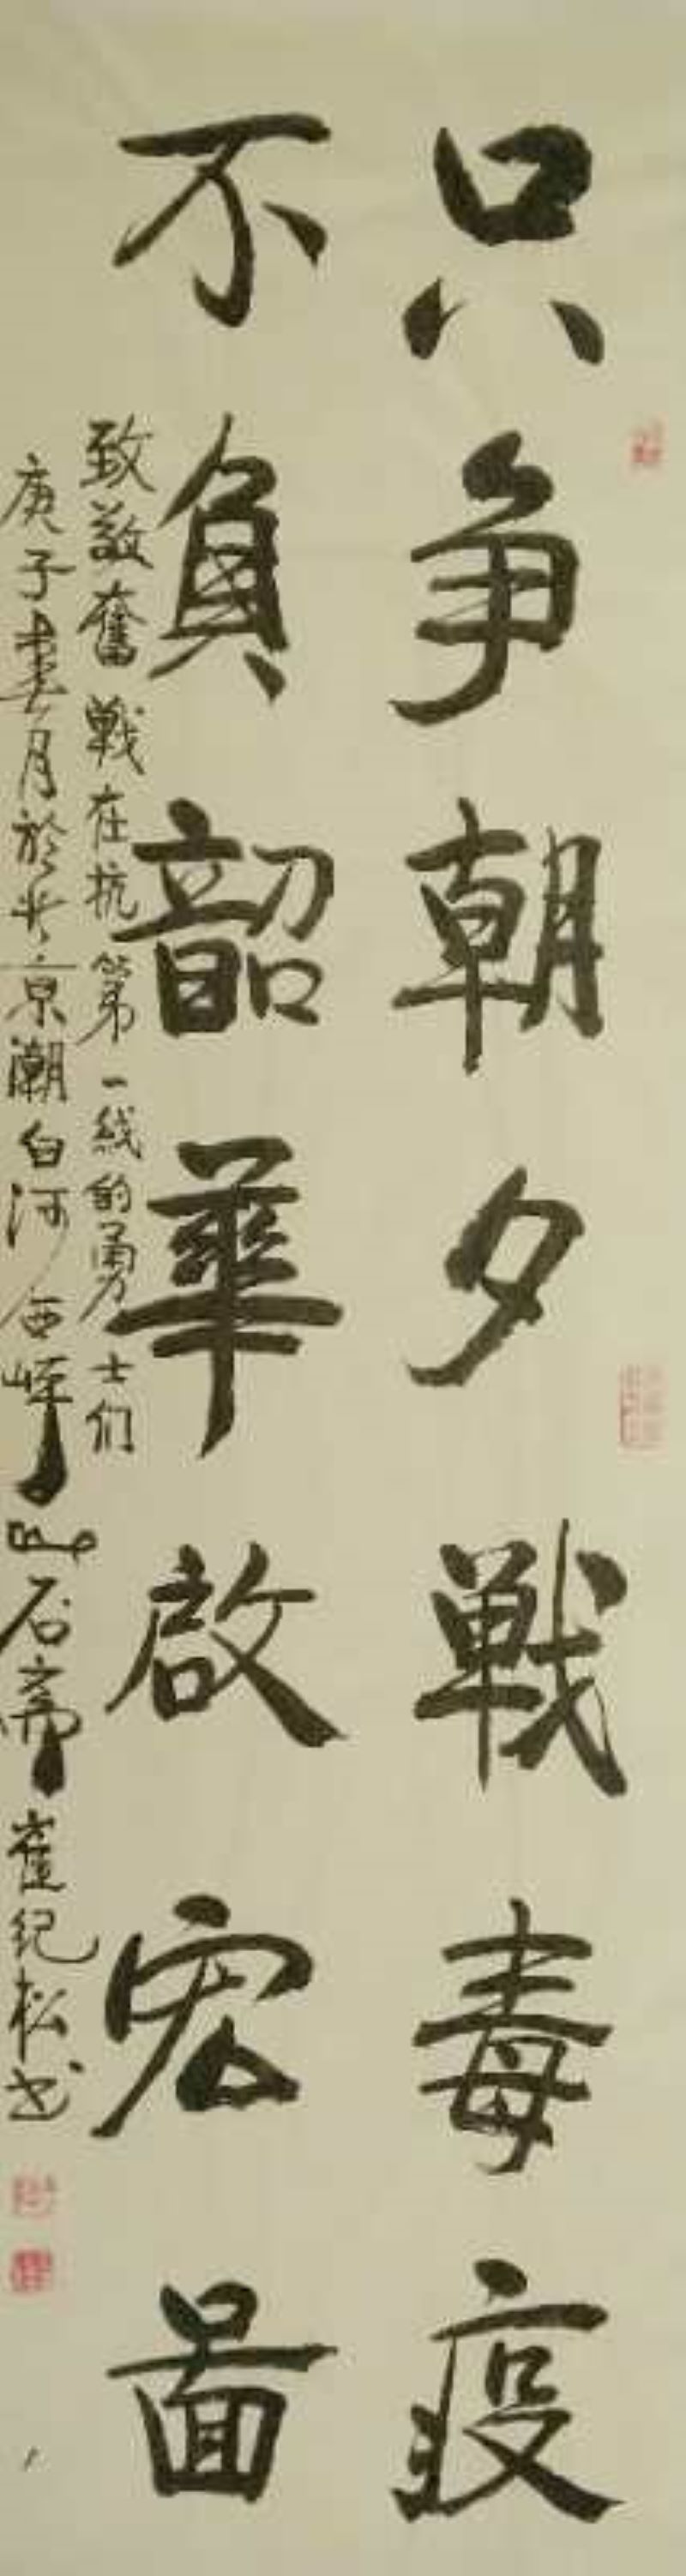 只争朝夕戦毒疫
不負韶華啟宏圖
致敬奮戰在抗第一线的勇士们
庚子春月於北京潮白河西岸 石斋崔纪松书